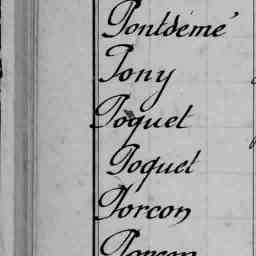 Pontdémé
Pony
Poquet
Poquet
Porcon
Porcon